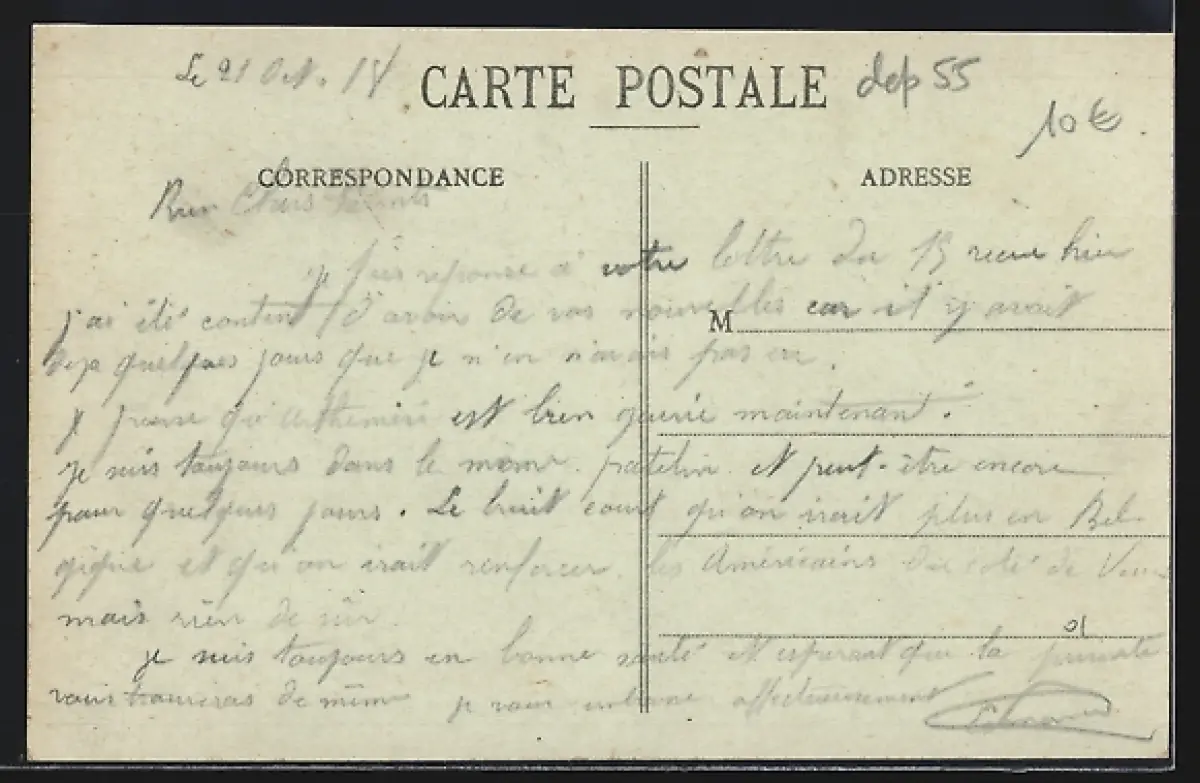 Le 21 Oct. 18
CARTE POSTALE
dep 55
10€
CORRESPONDANCE
ADRESSE
Bien Chers Parents
je fais reponse a votre lettre du 15 recue hier
j'ai été content d'avoir de vos nouvelles car il y avait
deja quelques jours que je n'en avais pas eu.
M
je pense qu' est bien guerie maintenant.
je suis toujours dans le même patelin et peut-être encore
pour quelques jours. Le bruit court qu'on irait plus en Bel-
gique et qu'on irait renforcer les Américains du côté de
mais rien de sûr
je suis toujours en bonne santé et esperant que la presente
vous trouveras de même je vous embrasse affectueusement